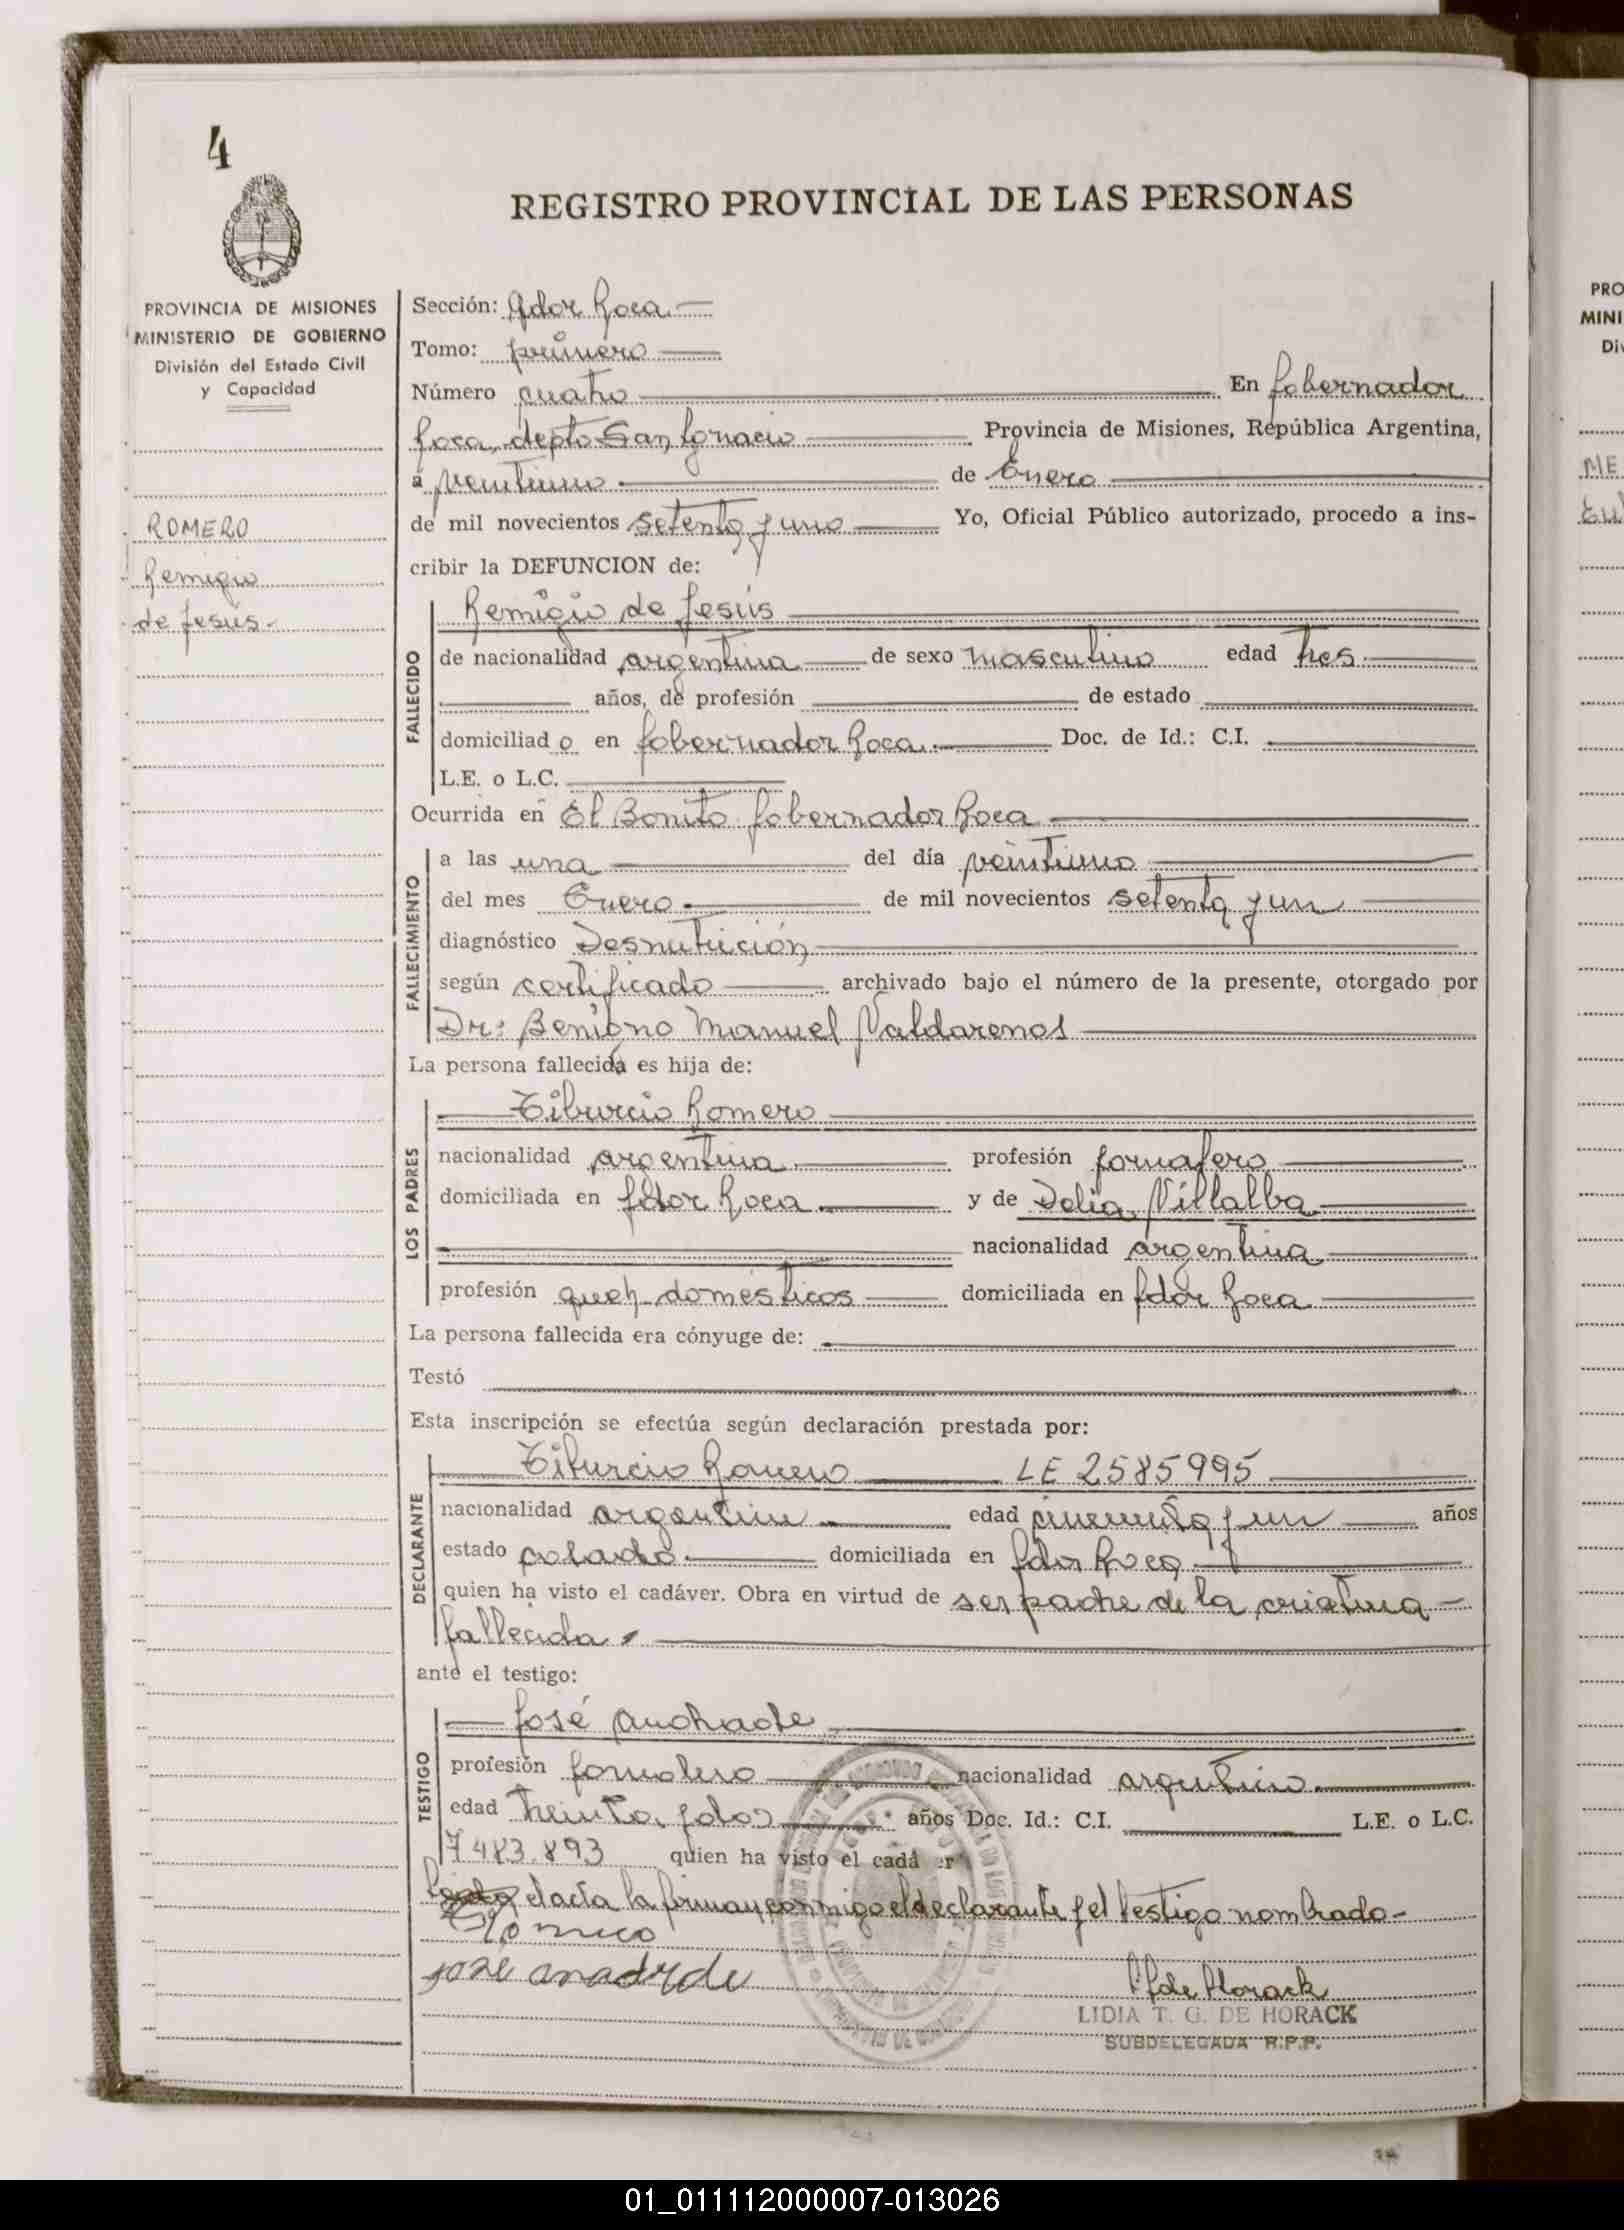 4
REGISTRO PROVINCIAL DE LAS PERSONAS
PROVINCIA DE MISIONES
MINISTERIO DE GOBIERNO
División del Estado Civil
y Capacidad
ROMERO
Remigio
de Jesús.-
Sección: Gdor Roca.-
Tomo: primero
Número cuatro En Gobernador
Roca, depto San Ignacio Provincia de Misiones, República Argentina,
a veintiuno de Enero
de mil novecientos setenta y uno Yo, Oficial Público autorizado, procedo a ins-
cribir la DEFUNCION de:
FALLECIDO
Remigio de Jesús
de nacionalidad argentina de sexo masculino edad tres
años, de profesión de estado
domiciliad o en Gobernador Roca.- Doc. de Id.: C.I.
L.E. o L.C.
Ocurrida en El Bonito Gobernador Roca
FALLECIMIENTO
a las una del día veintiuno
del mes Enero.- de mil novecientos setenta y un
diagnóstico Desnutrición
según certificado archivado bajo el número de la presente, otorgado por
Dr: Benigno Manuel Valdarenos
La persona fallecida es hija de:
LOS PADRES
Tiburcio Romero
nacionalidad argentina profesión jornalero
domiciliada en Gdor Roca y de Delia Villalba
nacionalidad argentina
profesión queh domésticos domiciliada en Gdor Roca
La persona fallecida era cónyuge de:
Testó
Esta inscripción se efectúa según declaración prestada por:
DECLARANTE
Tiburcio Romero LE 2585995
nacionalidad argentino edad cincuenta y un años
estado casado.- domiciliada en Gdor Roca
quien ha visto el cadáver. Obra en virtud de ser padre de la criatura
fallecida.
ante el testigo:
TESTIGO
José Andrade
profesión jornalero nacionalidad argentino
edad treinta y dos años Doc. Id.: C.I. L.E. o L.C.
7483.893 quien ha visto el cadá er
Leída el acta la firman conmigo el declarante y el testigo nombrado-
jose anadrde
G de Horack
LIDIA T. G. DE HORACK
SUBDELEGADA R.P.P.
PRO
MINI
Div
ME
01_011112000007-013026